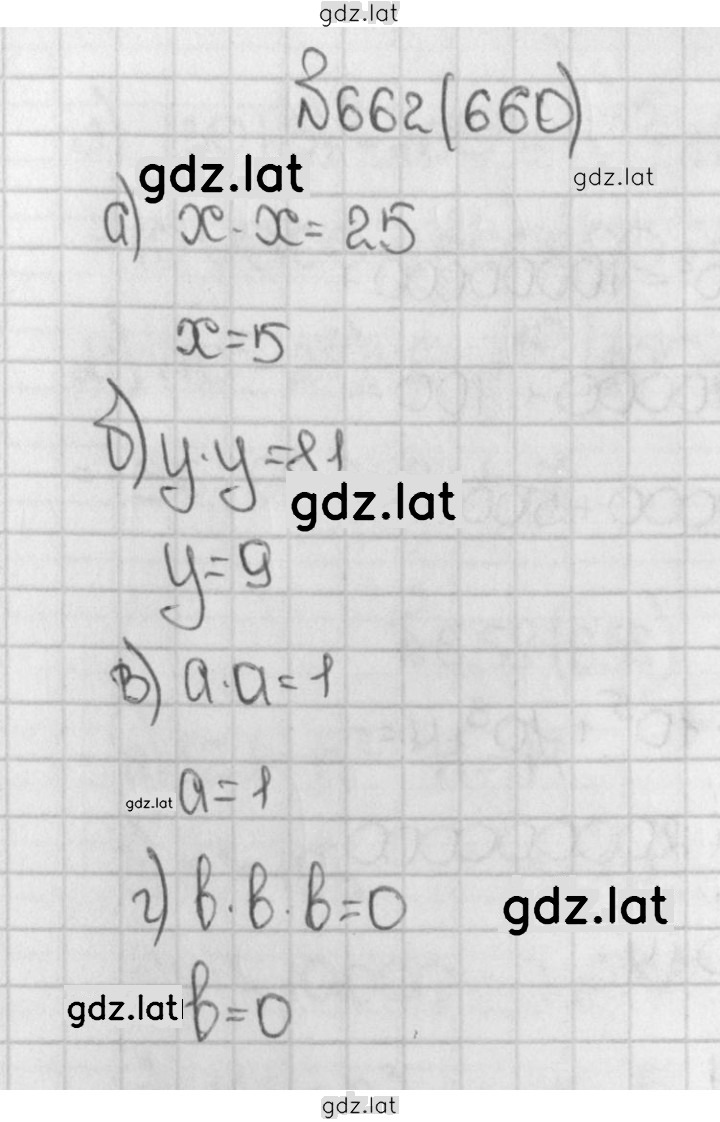 gdz.lat
№662(660)
gdz.lat
gdz.lat
а) x·x=25
x=5
б) y·y=81
gdz.lat
y=9
в) a·a=1
gdz.lat
a=1
г) b·b·b=0
gdz.lat
gdz.lat
b=0
gdz.lat